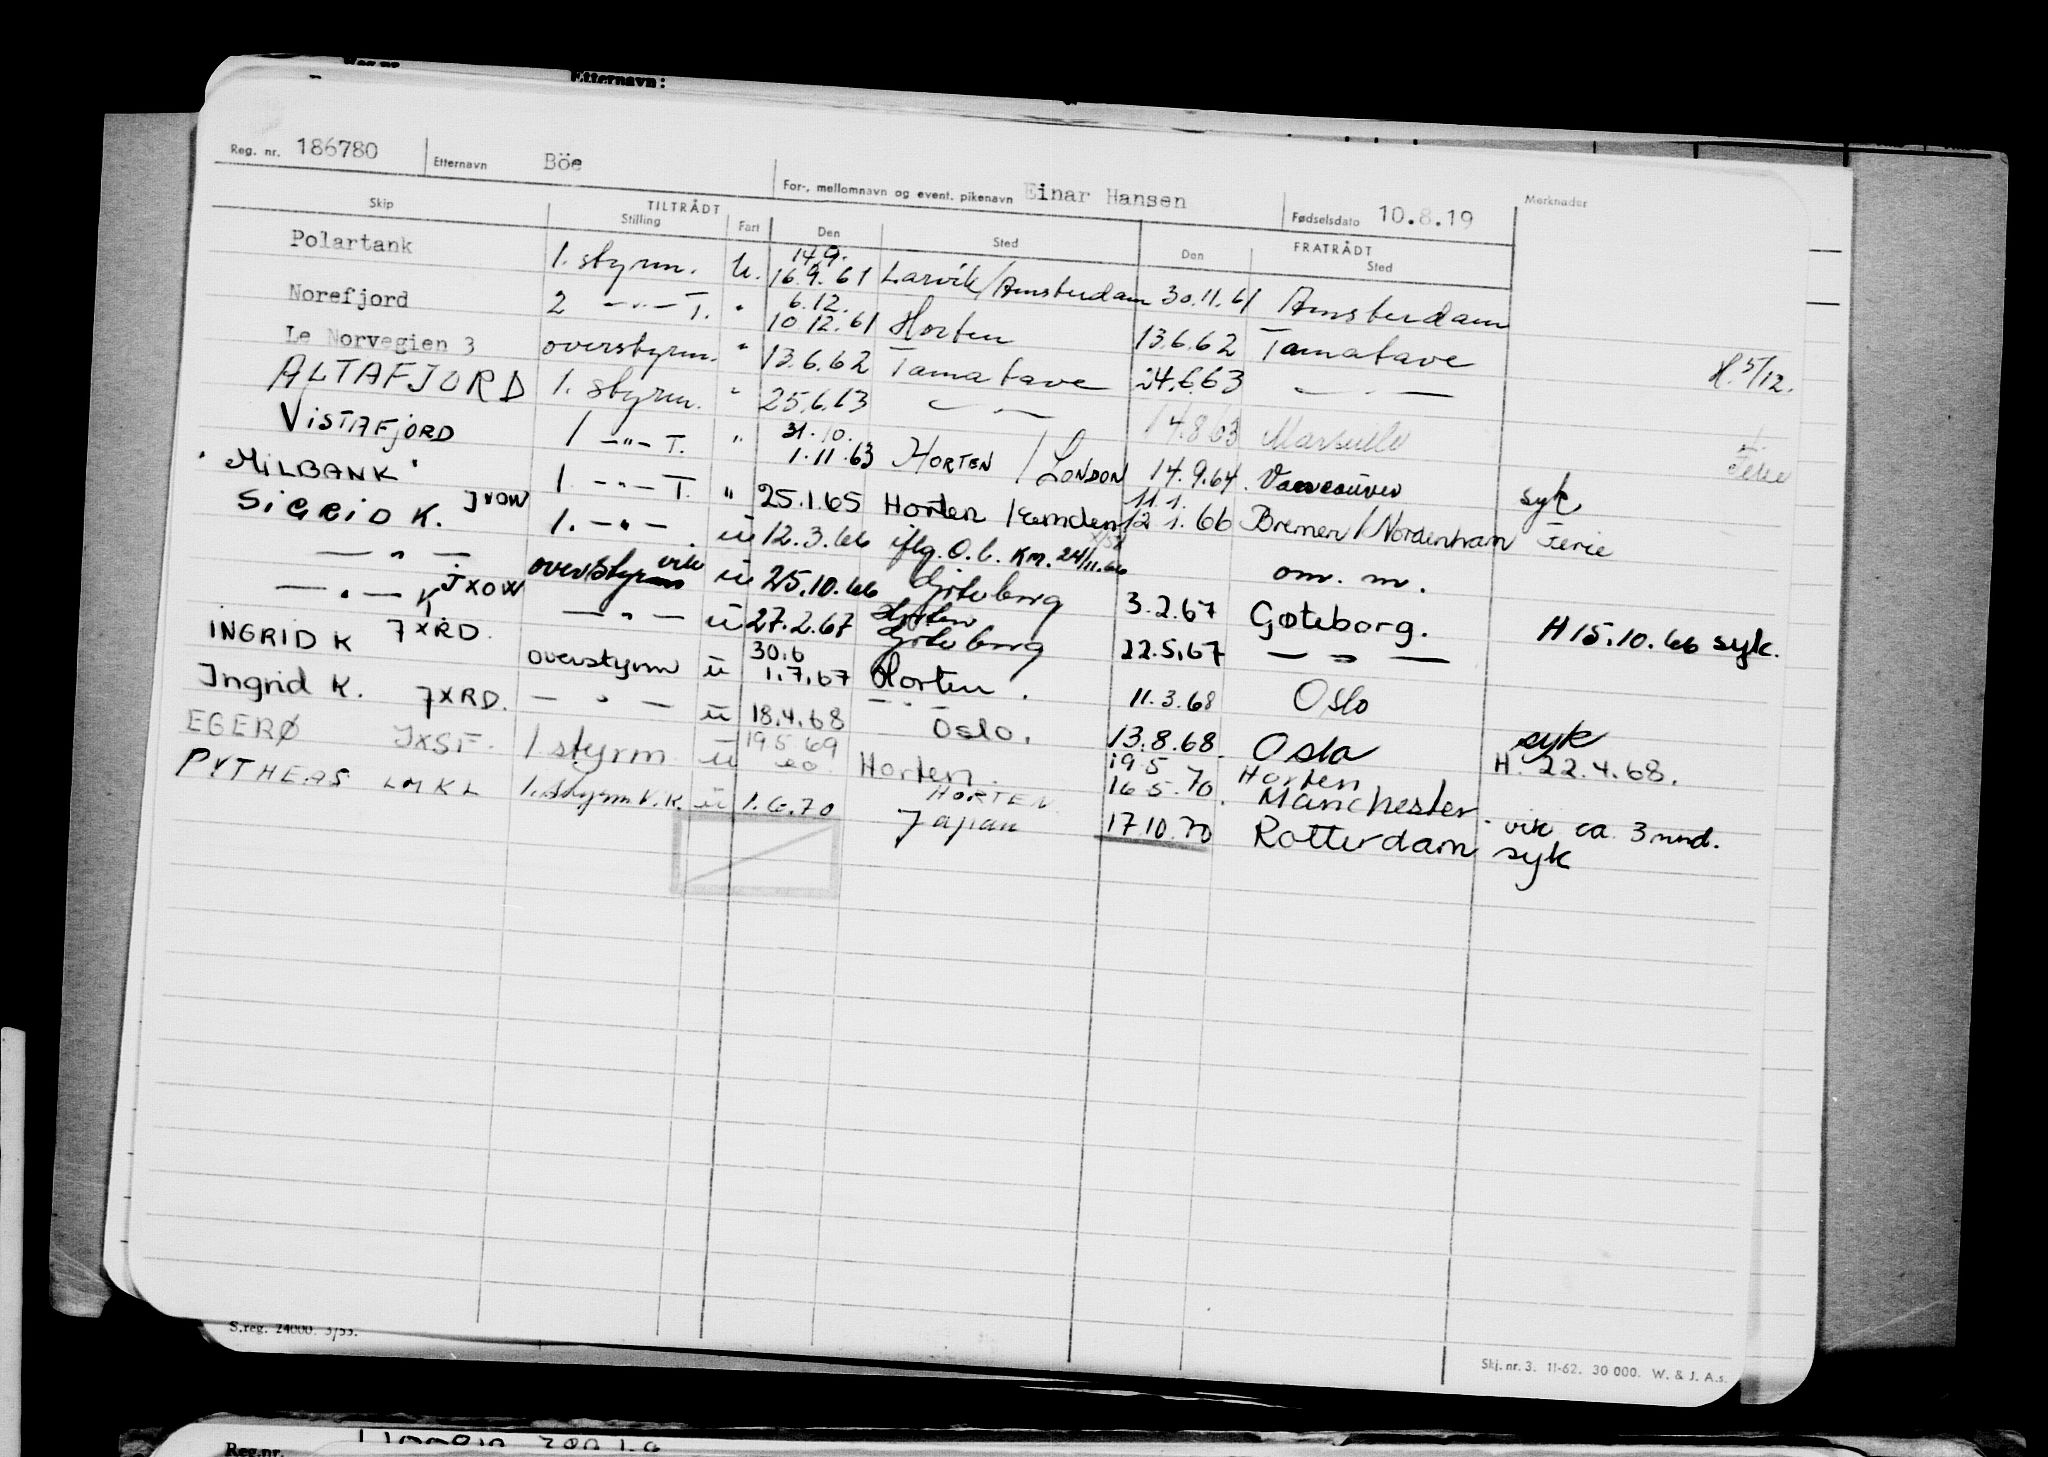 Etternavn:
Reg. nr. 186780 Etternavn Böe For-, mellomnavn og event. pikenavn Einar Hansen Fødselsdato 10.8.19 Merknader
Skip TILTRÅDT Stilling Fart Den Sted FRATRÅDT Den Sted
Polartank 1. styrm. U. 14.9. 16.9.61 Larvik/Amsterdam 30.11.61 Amsterdam
Norefjord 2 —"— T. " 6.12. 10.12.61 Horten 13.6.62 Tamatave H. 5/12.
Le Norvegien 3 overstyrm. " 13.6.62 Tamatave 24.6.63 — " —
ALTAFJORD 1. styrm. " 25.6.63 — " — 14.8.63 Marseille Ferie
VISTAFJORD 1 —"— T. " 31.10. 1.11.63 HORTEN / LONDON 14.9.64. Vancouver syk
"MILBANK" 1. —"— T. " 25.1.65 Horten / Emden 11.1. 12.1.66 Bremen / Nordenham Ferie
SIGRID K. JXOW 1. —"— ü 12.3.66 iflg. O.b. KM. 24/11.66 om. m.
— " — overstyrm vik ü 25.10.66 Göteborg 3.2.67 Gøteborg. H 15.10.66 syk.
— " — K JXOW — " — ü 27.2.67 Horten Göteborg 22.5.67 — " —
INGRID K JXRD. overstyrm ü 30.6 1.7.67 Horten. 11.3.68 Oslo
Ingrid K. JXRD. — " — ü 18.4.68 — " — Oslo. 13.8.68. Oslo syk H. 22.4.68.
EGERØ JXSF. 1 styrm ü 19.5.69 20 Horten. 19.5 16.5.70 Horten Manchester. vik ca. 3 mnd.
PYTHEAS LMKL 1. styrm V.K. ü 1.6.70 HORTEN Japan 17.10.70 Rotterdam syk
S.reg. 24000. 3/55.
Skj. nr. 3. 11-62. 30 000. W. & J. A.s.
Reg.nr.